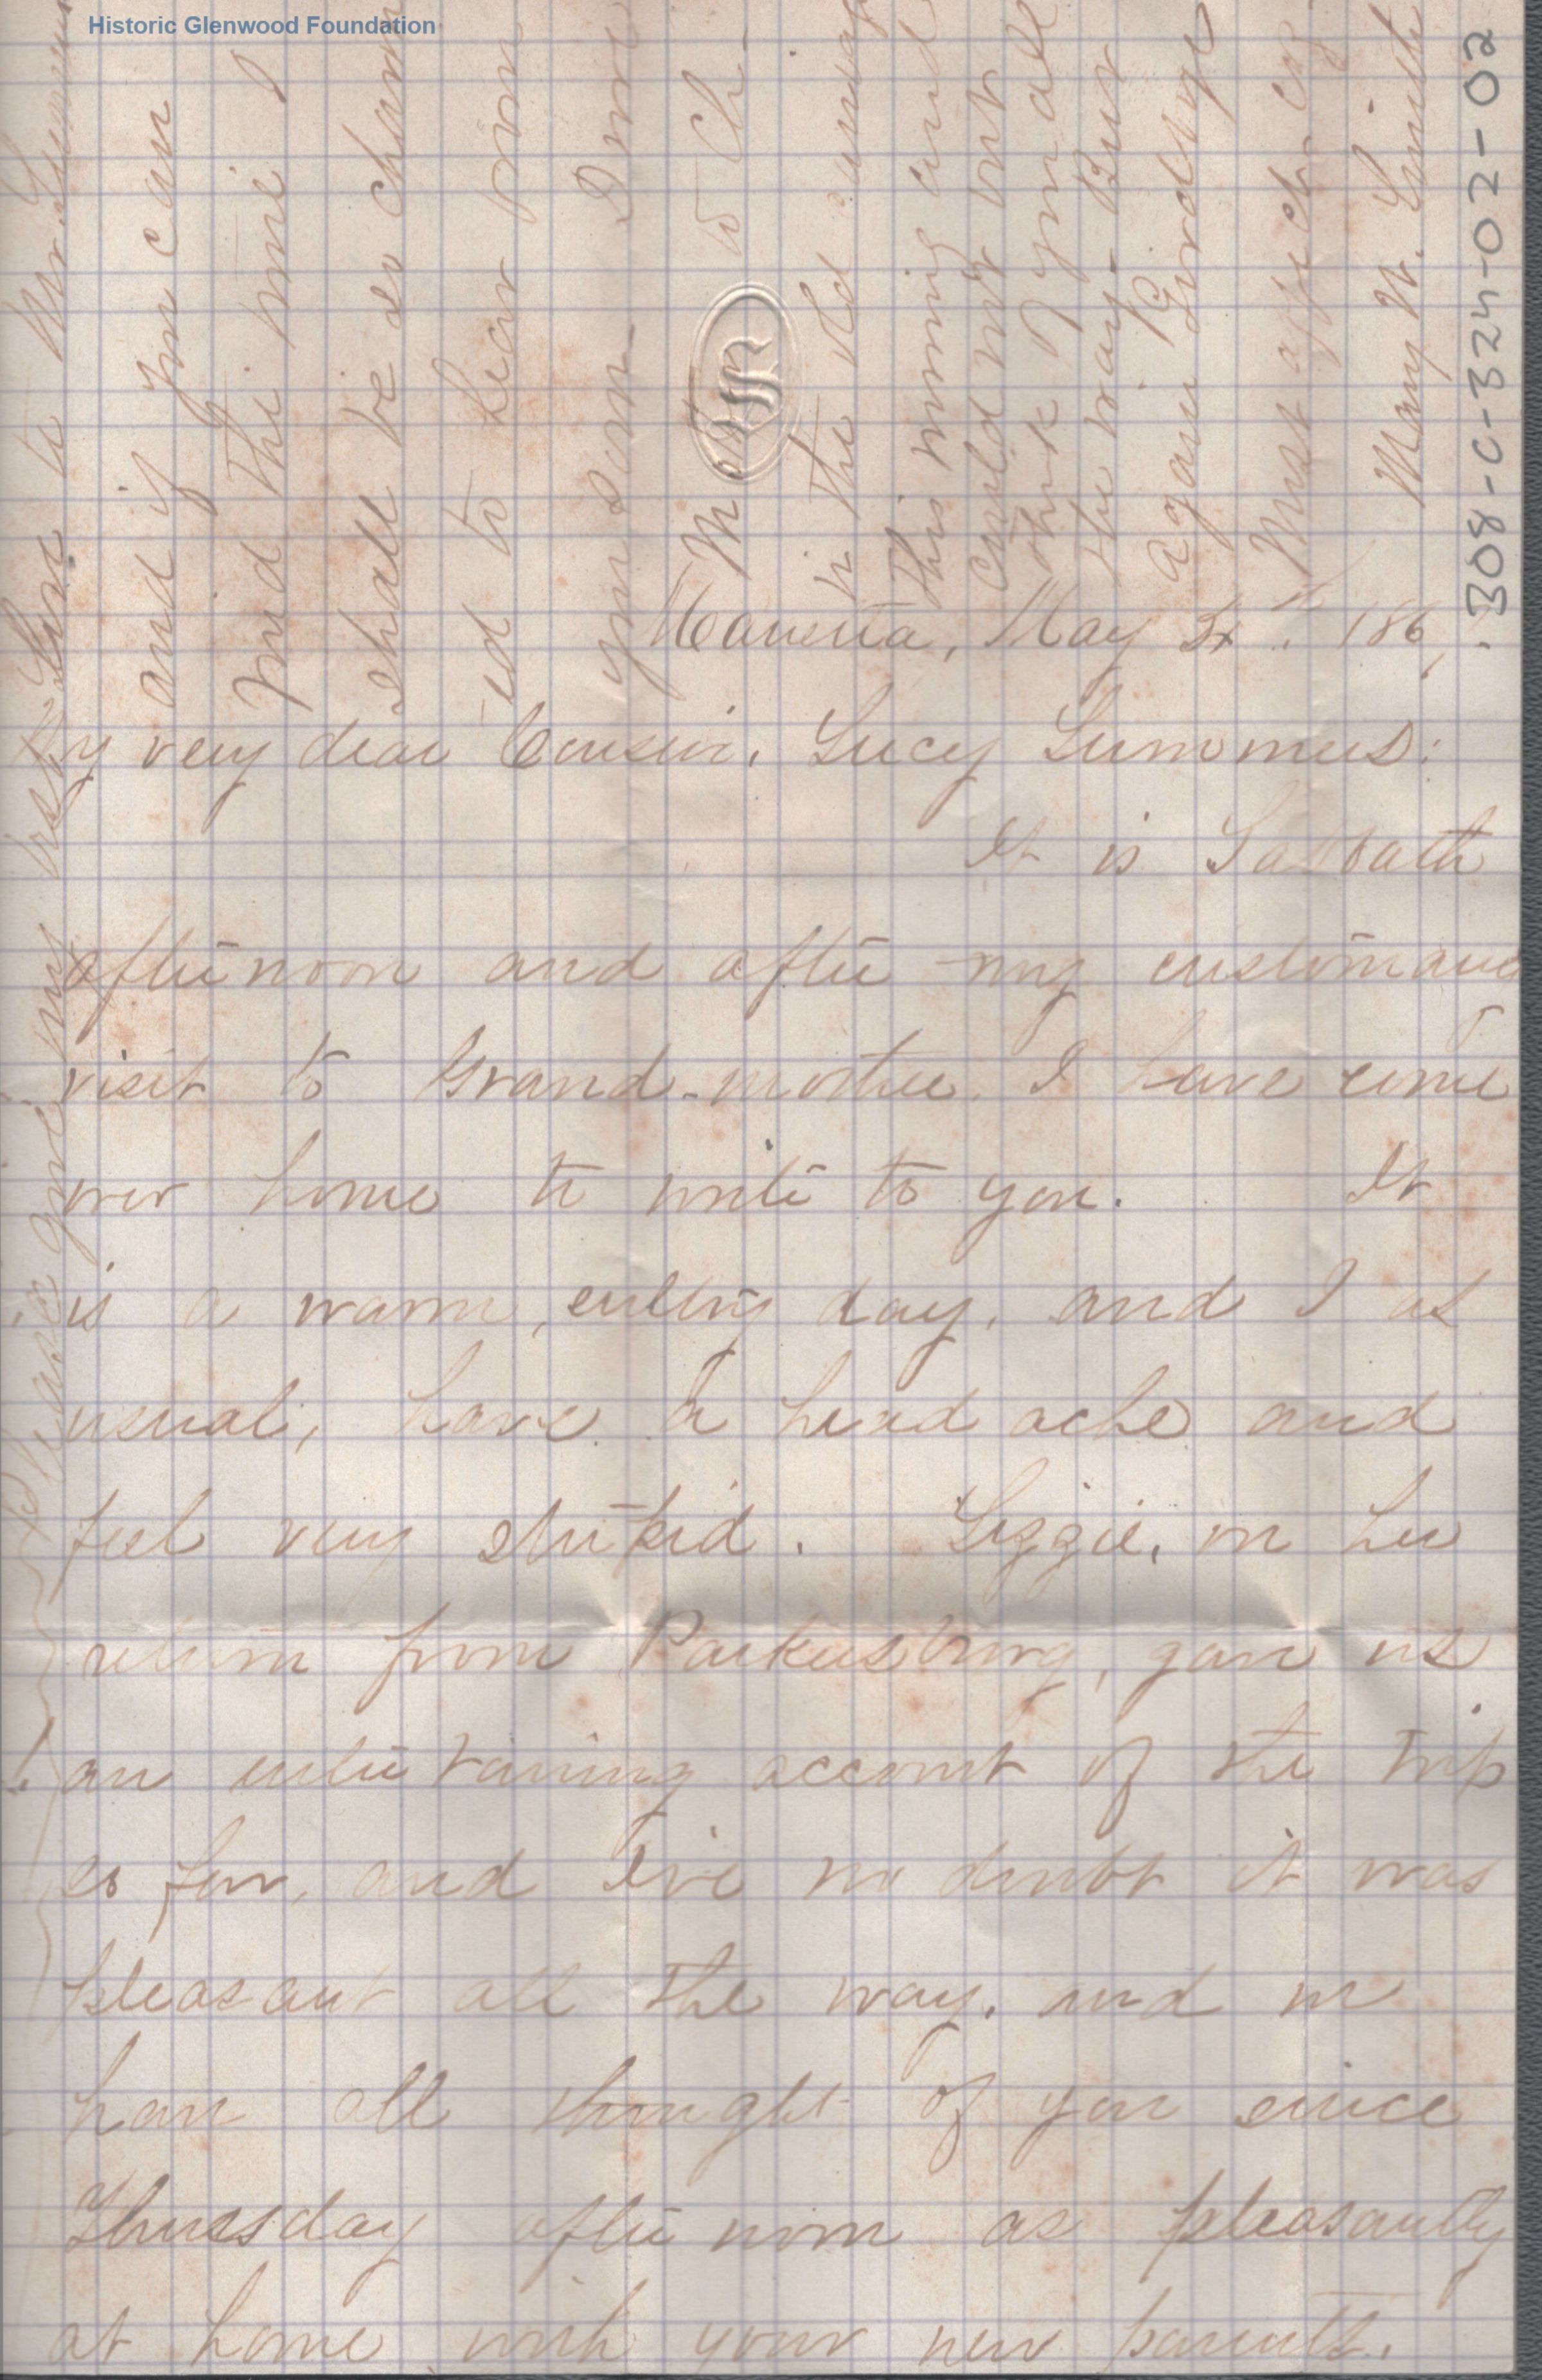 Historic Glenwood Foundation
308-C-324-02-02
Marietta, May 31st. 186
My very dear Cousin, Lucy Summers:
It is Sabbath
afternoon and after my customary
visit to Grand-mother I have come
over home to write to you. It
is a warm, sultry day, and I as
usual, have a head ache and
feel very stupid. Lizzie, on her
return from Parkersburg, gave us
an entertaining account of the trip
so far, and I've no doubt it was
pleasant all the way, and we
have all thought of you since
Thursday afternoon as pleasantly
at home with your new parents.
Please give my best love to Mr. Summers
and if you can
find the time I
shall be so charm
-ed to hear from
you soon.
to the old
this morning and
could not but
think of you all
the way - But
again Good bye
Most affect. coz
Mary W. Smith